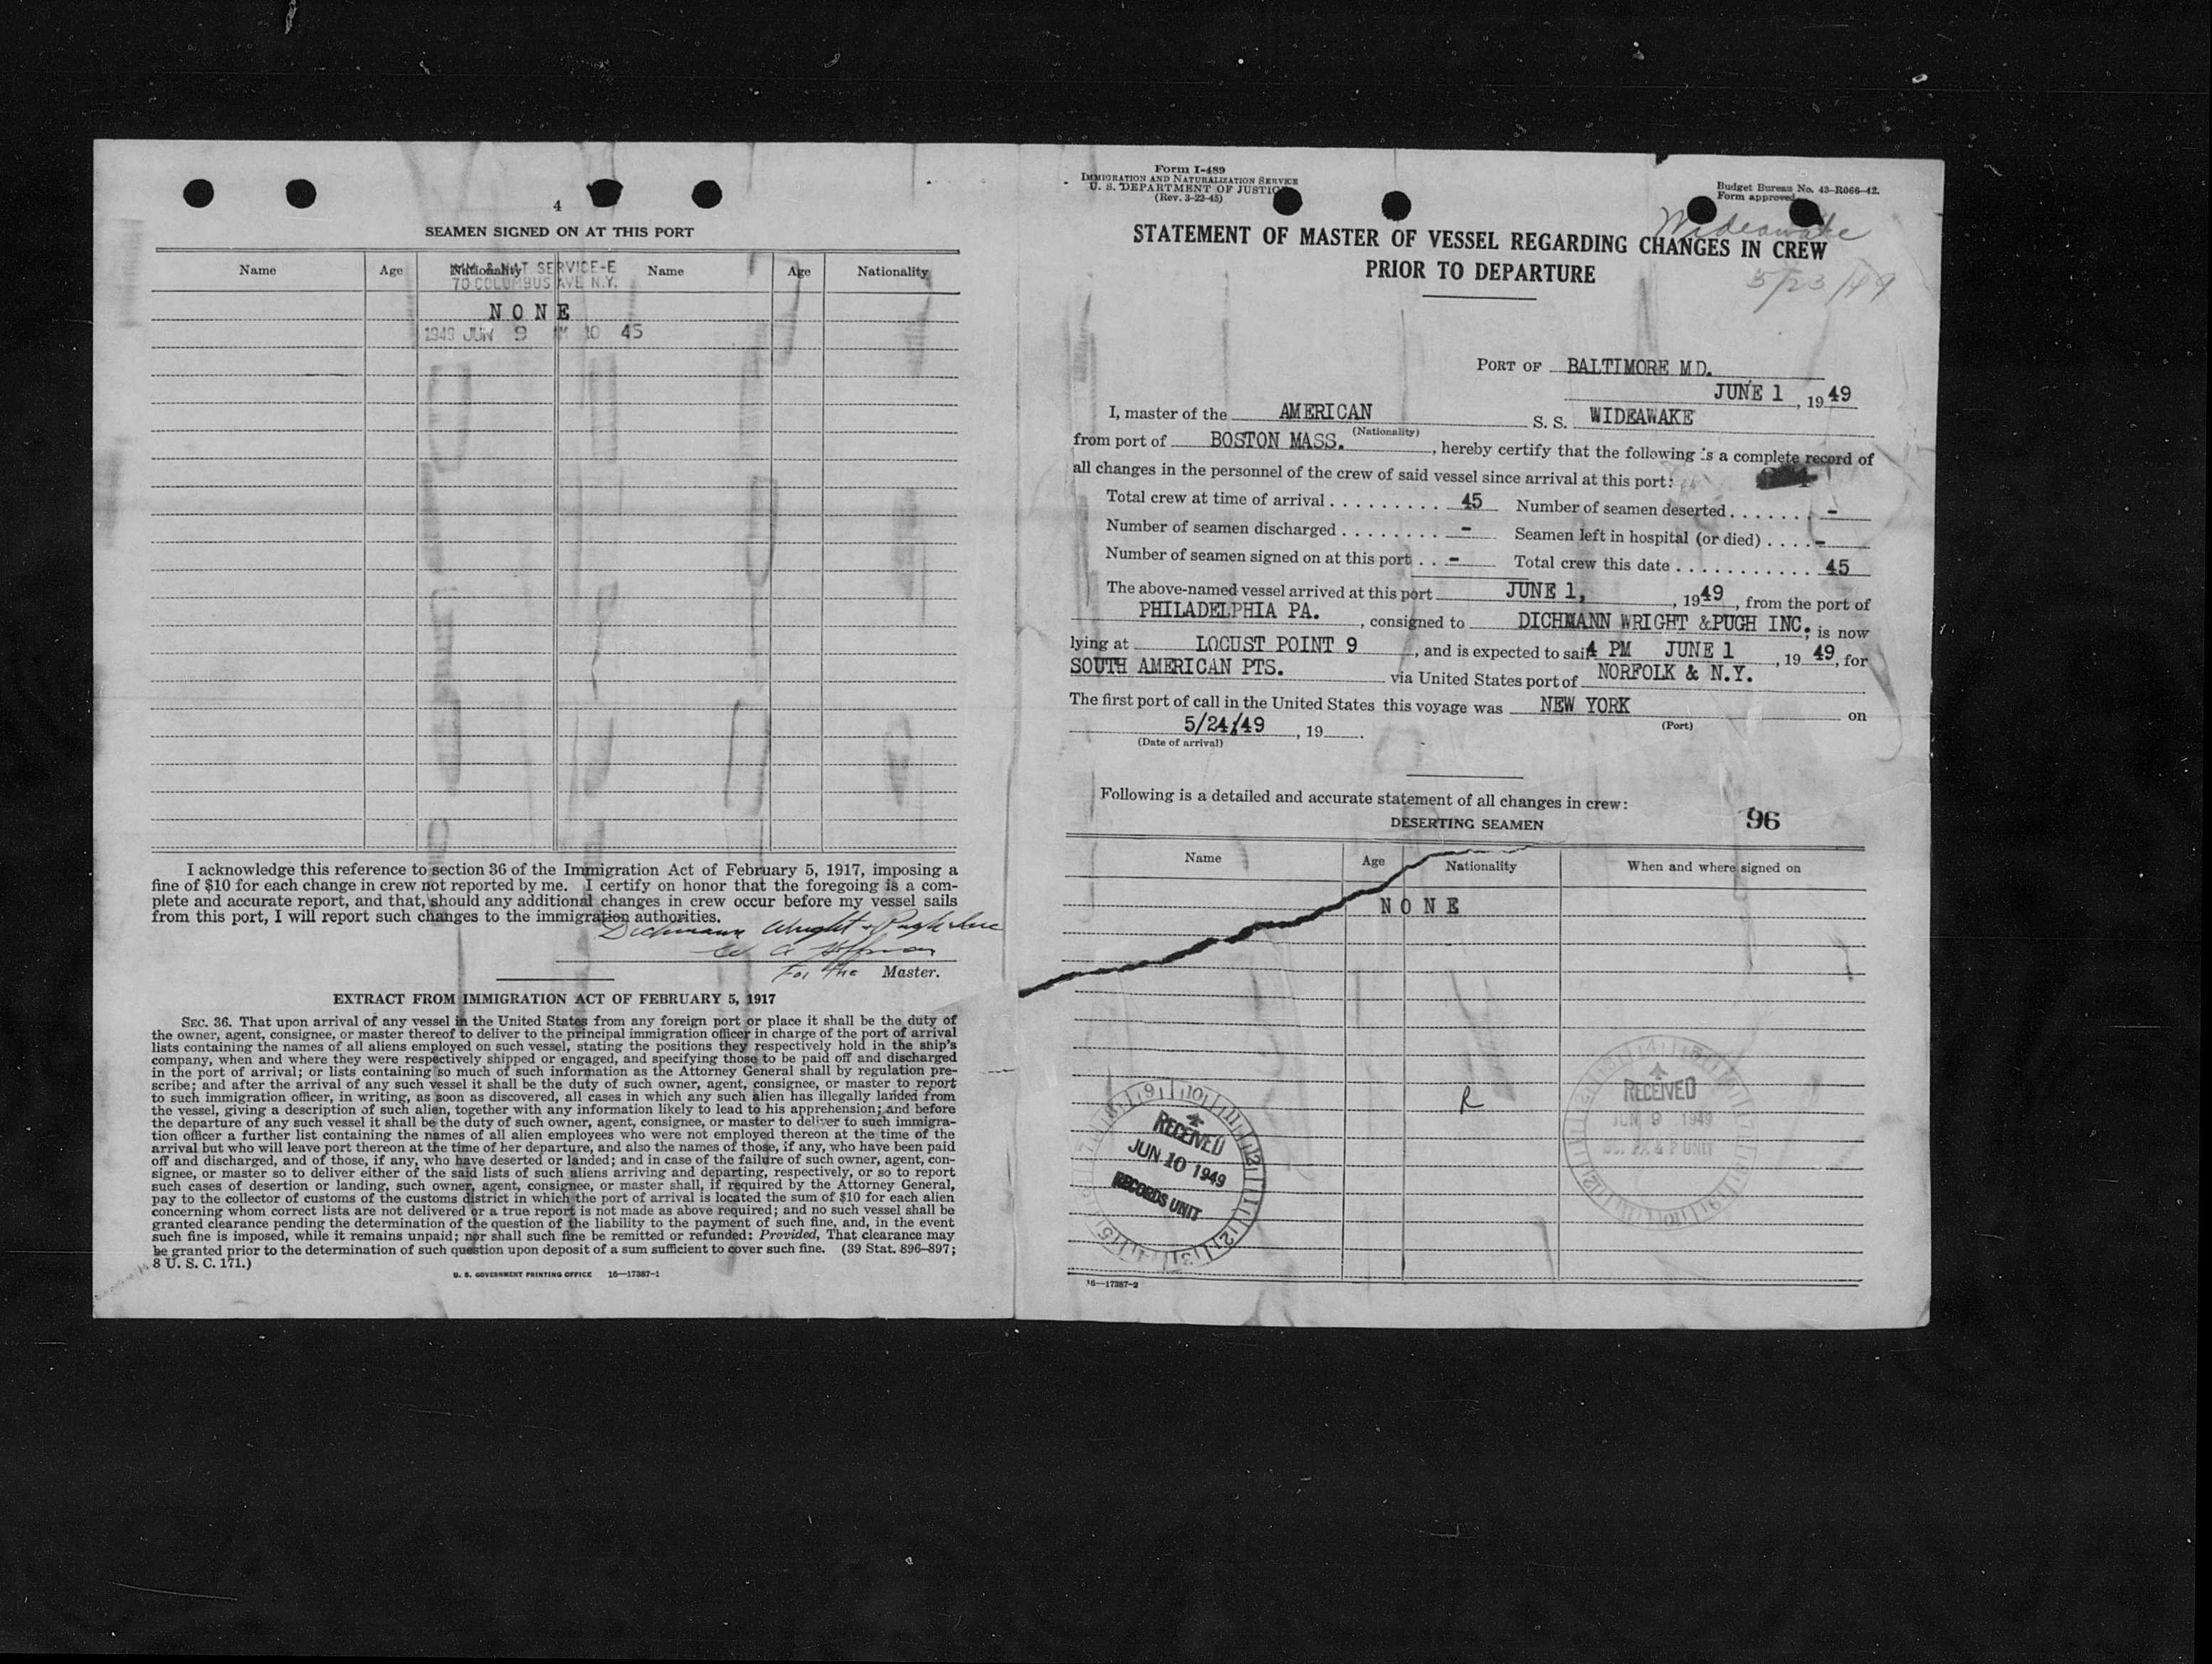 4
SEAMEN SIGNED ON AT THIS PORT
Name Age Nationality Name Age Nationality
NAT SERVICE-E
70 COLUMBUS AVE N.Y.
NONE
1949 JUN 9 10 45
I acknowledge this reference to section 36 of the Immigration Act of February 5, 1917, imposing a
fine of $10 for each change in crew not reported by me. I certify on honor that the foregoing is a com-
plete and accurate report, and that, should any additional changes in crew occur before my vessel sails
from this port, I will report such changes to the immigration authorities.
Dichmann Wright & Pugh Inc
For the Master.
EXTRACT FROM IMMIGRATION ACT OF FEBRUARY 5, 1917
SEC. 36. That upon arrival of any vessel in the United States from any foreign port or place it shall be the duty of
the owner, agent, consignee, or master thereof to deliver to the principal immigration officer in charge of the port of arrival
lists containing the names of all aliens employed on such vessel, stating the positions they respectively hold in the ship's
company, when and where they were respectively shipped or engaged, and specifying those to be paid off and discharged
in the port of arrival; or lists containing so much of such information as the Attorney General shall by regulation pre-
scribe; and after the arrival of any such vessel it shall be the duty of such owner, agent, consignee, or master to report
to such immigration officer, in writing, as soon as discovered, all cases in which any such alien has illegally landed from
the vessel, giving a description of such alien, together with any information likely to lead to his apprehension; and before
the departure of any such vessel it shall be the duty of such owner, agent, consignee, or master to deliver to such immigra-
tion officer a further list containing the names of all alien employees who were not employed thereon at the time of the
arrival but who will leave port thereon at the time of her departure, and also the names of those, if any, who have been paid
off and discharged, and of those, if any, who have deserted or landed; and in case of the failure of such owner, agent, con-
signee, or master so to deliver either of the said lists of such aliens arriving and departing, respectively, or so to report
such cases of desertion or landing, such owner, agent, consignee, or master shall, if required by the Attorney General,
pay to the collector of customs of the customs district in which the port of arrival is located the sum of $10 for each alien
concerning whom correct lists are not delivered or a true report is not made as above required; and no such vessel shall be
granted clearance pending the determination of the question of the liability to the payment of such fine, and, in the event
such fine is imposed, while it remains unpaid; nor shall such fine be remitted or refunded: Provided, That clearance may
be granted prior to the determination of such question upon deposit of a sum sufficient to cover such fine. (39 Stat. 896–897;
8 U. S. C. 171.)
U. S. GOVERNMENT PRINTING OFFICE 16—17387-1
Form I-489
IMMIGRATION AND NATURALIZATION SERVICE
U. S. DEPARTMENT OF JUSTICE
(Rev. 3-22-45)
Budget Bureau No. 43–R066–42.
Form approved
Wideawake
STATEMENT OF MASTER OF VESSEL REGARDING CHANGES IN CREW
PRIOR TO DEPARTURE
5/23/49
PORT OF BALTIMORE MD.
JUNE 1, 1949
I, master of the AMERICAN S. S. WIDEAWAKE
(Nationality)
from port of BOSTON MASS., hereby certify that the following is a complete record of
all changes in the personnel of the crew of said vessel since arrival at this port:
Total crew at time of arrival . . . . . . . . . 45 Number of seamen deserted . . . . . . . -
Number of seamen discharged . . . . . . . . - Seamen left in hospital (or died) . . . . -
Number of seamen signed on at this port . . - Total crew this date . . . . . . . . . . . 45
The above-named vessel arrived at this port JUNE 1, , 1949, from the port of
PHILADELPHIA PA. , consigned to DICHMANN WRIGHT &PUGH INC. , is now
lying at LOCUST POINT 9 , and is expected to sail 4 PM JUNE 1 , 19 49, for
SOUTH AMERICAN PTS. via United States port of NORFOLK & N.Y.
The first port of call in the United States this voyage was NEW YORK on
(Port)
5/24/49 , 19 .
(Date of arrival)
Following is a detailed and accurate statement of all changes in crew:
96
DESERTING SEAMEN
Name Age Nationality When and where signed on
NONE
R
RECEIVED
JUN 9 1949
RECEIVED
JUN 10 1949
RECORDS UNIT
16—17387-2